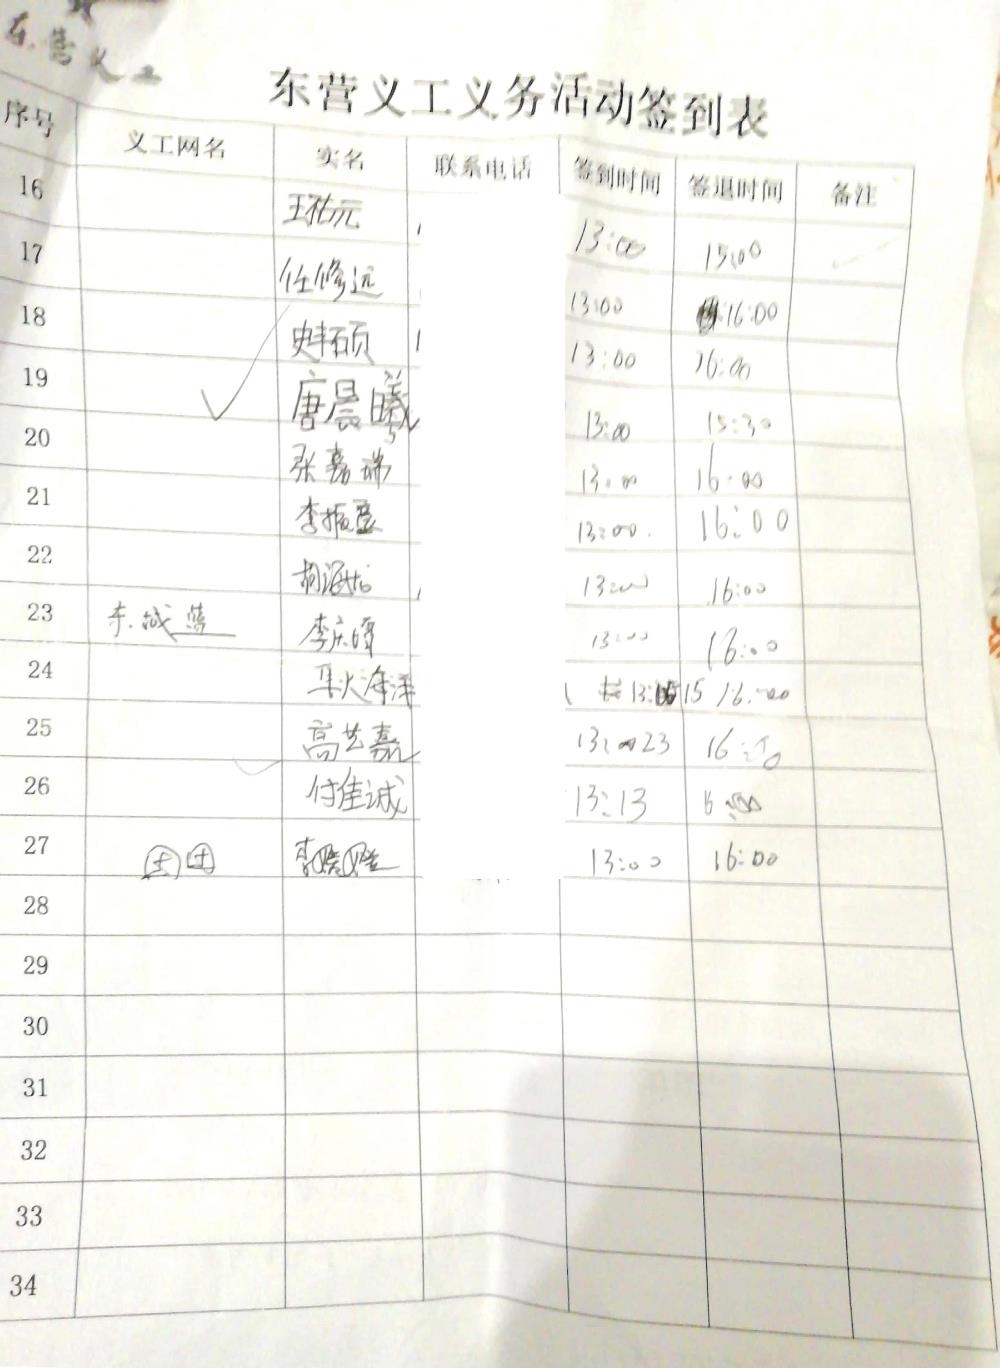 东营义工
东营义工义务活动签到表
序号 义工网名 实名 联系电话 签到时间 签退时间 备注
16 王祐元 13:00 15:00
17 任修远 13:00 16:00
18 史丰硕 13:00 16:00
19 唐晨曦 13:00 15:30
20 张嘉瑞 13:00 16:00
21 李振 13:00 16:00
22 胡海 13:00 16:00
23 东城 李庆 13:00 16:00
24 海洋 13: 15 16:00
25 高艺嘉 13: 23 16:
26 付佳诚 13:13
27 李 13:00 16:00
28
29
30
31
32
33
34